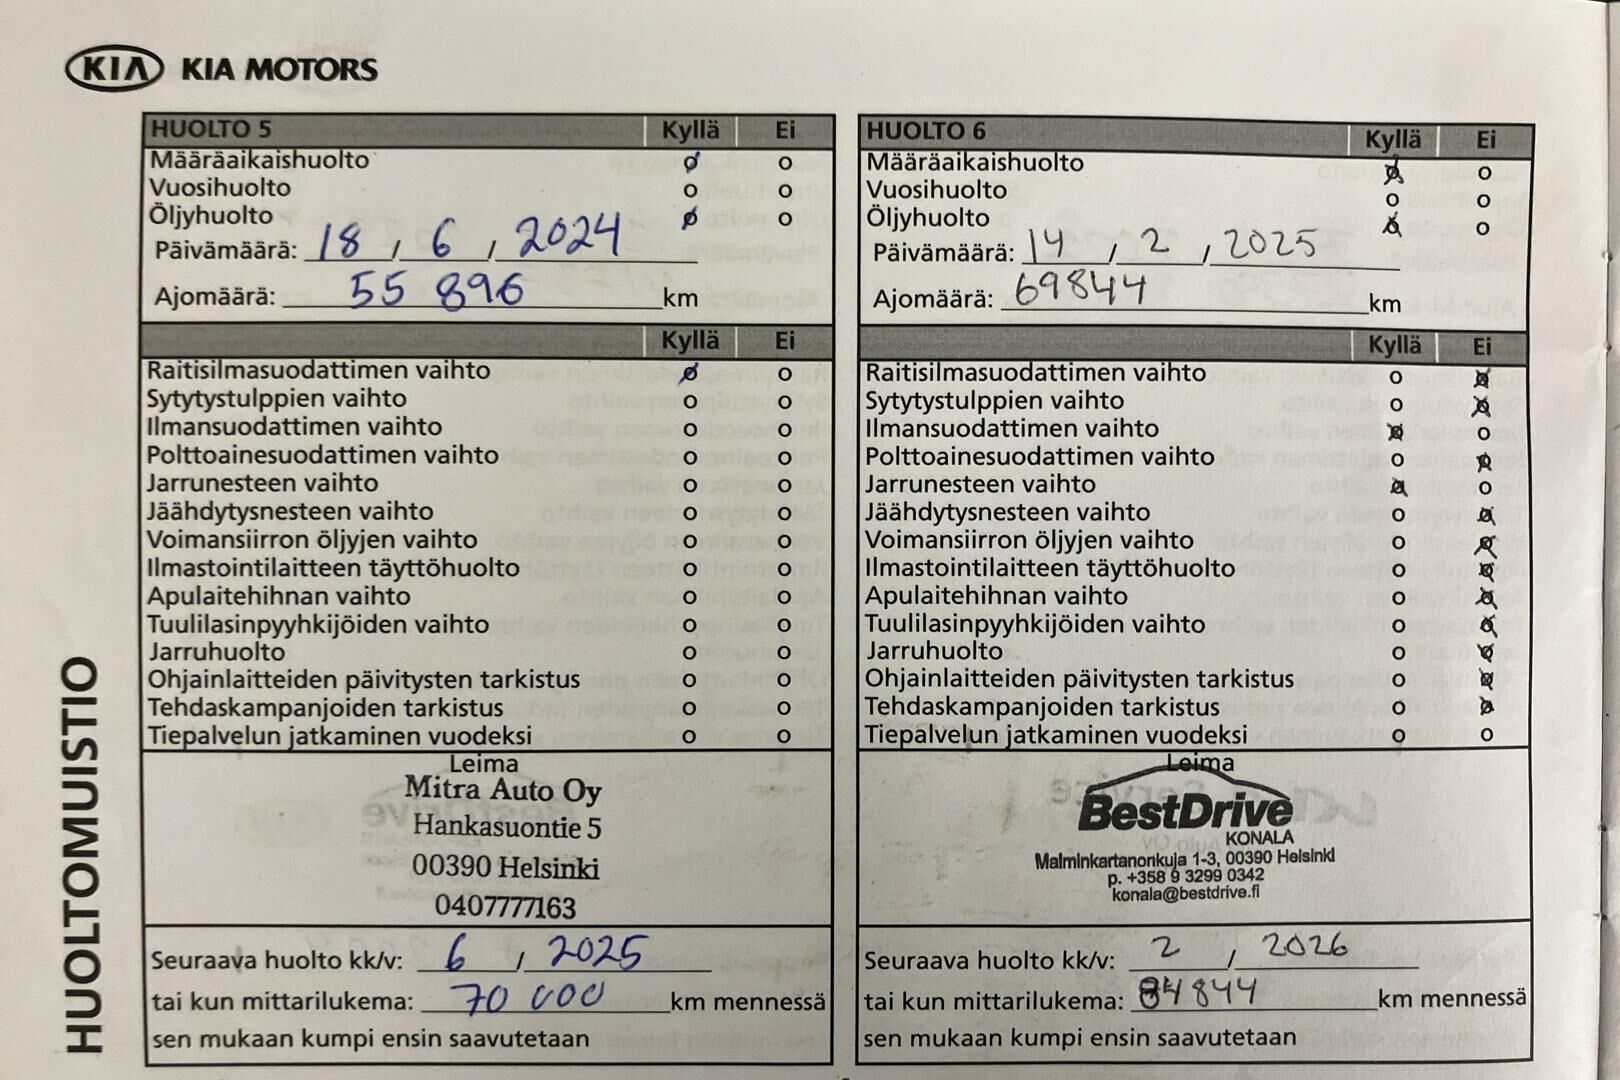 KIA KIA MOTORS
HUOLTOMUISTIO
HUOLTO 5 Kyllä Ei
Määräaikaishuolto
Vuosihuolto
Öljyhuolto
Päivämäärä: 18 / 6 / 2024
Ajomäärä: 55 896 km
Kyllä Ei
Raitisilmasuodattimen vaihto
Sytytystulppien vaihto
Ilmansuodattimen vaihto
Polttoainesuodattimen vaihto
Jarrunesteen vaihto
Jäähdytysnesteen vaihto
Voimansiirron öljyjen vaihto
Ilmastointilaitteen täyttöhuolto
Apulaitehihnan vaihto
Tuulilasinpyyhkijöiden vaihto
Jarruhuolto
Ohjainlaitteiden päivitysten tarkistus
Tehdaskampanjoiden tarkistus
Tiepalvelun jatkaminen vuodeksi
Leima
Mitra Auto Oy
Hankasuontie 5
00390 Helsinki
0407777163
Seuraava huolto kk/v: 6 / 2025
tai kun mittarilukema: 70 000 km mennessä
sen mukaan kumpi ensin saavutetaan
HUOLTO 6 Kyllä Ei
Määräaikaishuolto
Vuosihuolto
Öljyhuolto
Päivämäärä: 14 / 2 / 2025
Ajomäärä: 69844 km
Kyllä Ei
Raitisilmasuodattimen vaihto
Sytytystulppien vaihto
Ilmansuodattimen vaihto
Polttoainesuodattimen vaihto
Jarrunesteen vaihto
Jäähdytysnesteen vaihto
Voimansiirron öljyjen vaihto
Ilmastointilaitteen täyttöhuolto
Apulaitehihnan vaihto
Tuulilasinpyyhkijöiden vaihto
Jarruhuolto
Ohjainlaitteiden päivitysten tarkistus
Tehdaskampanjoiden tarkistus
Tiepalvelun jatkaminen vuodeksi
Leima
BestDrive
KONALA
Malminkartanonkuja 1-3, 00390 Helsinki
p. +358 9 3299 0342
konala@bestdrive.fi
Seuraava huolto kk/v: 2 / 2026
tai kun mittarilukema: 84844 km mennessä
sen mukaan kumpi ensin saavutetaan